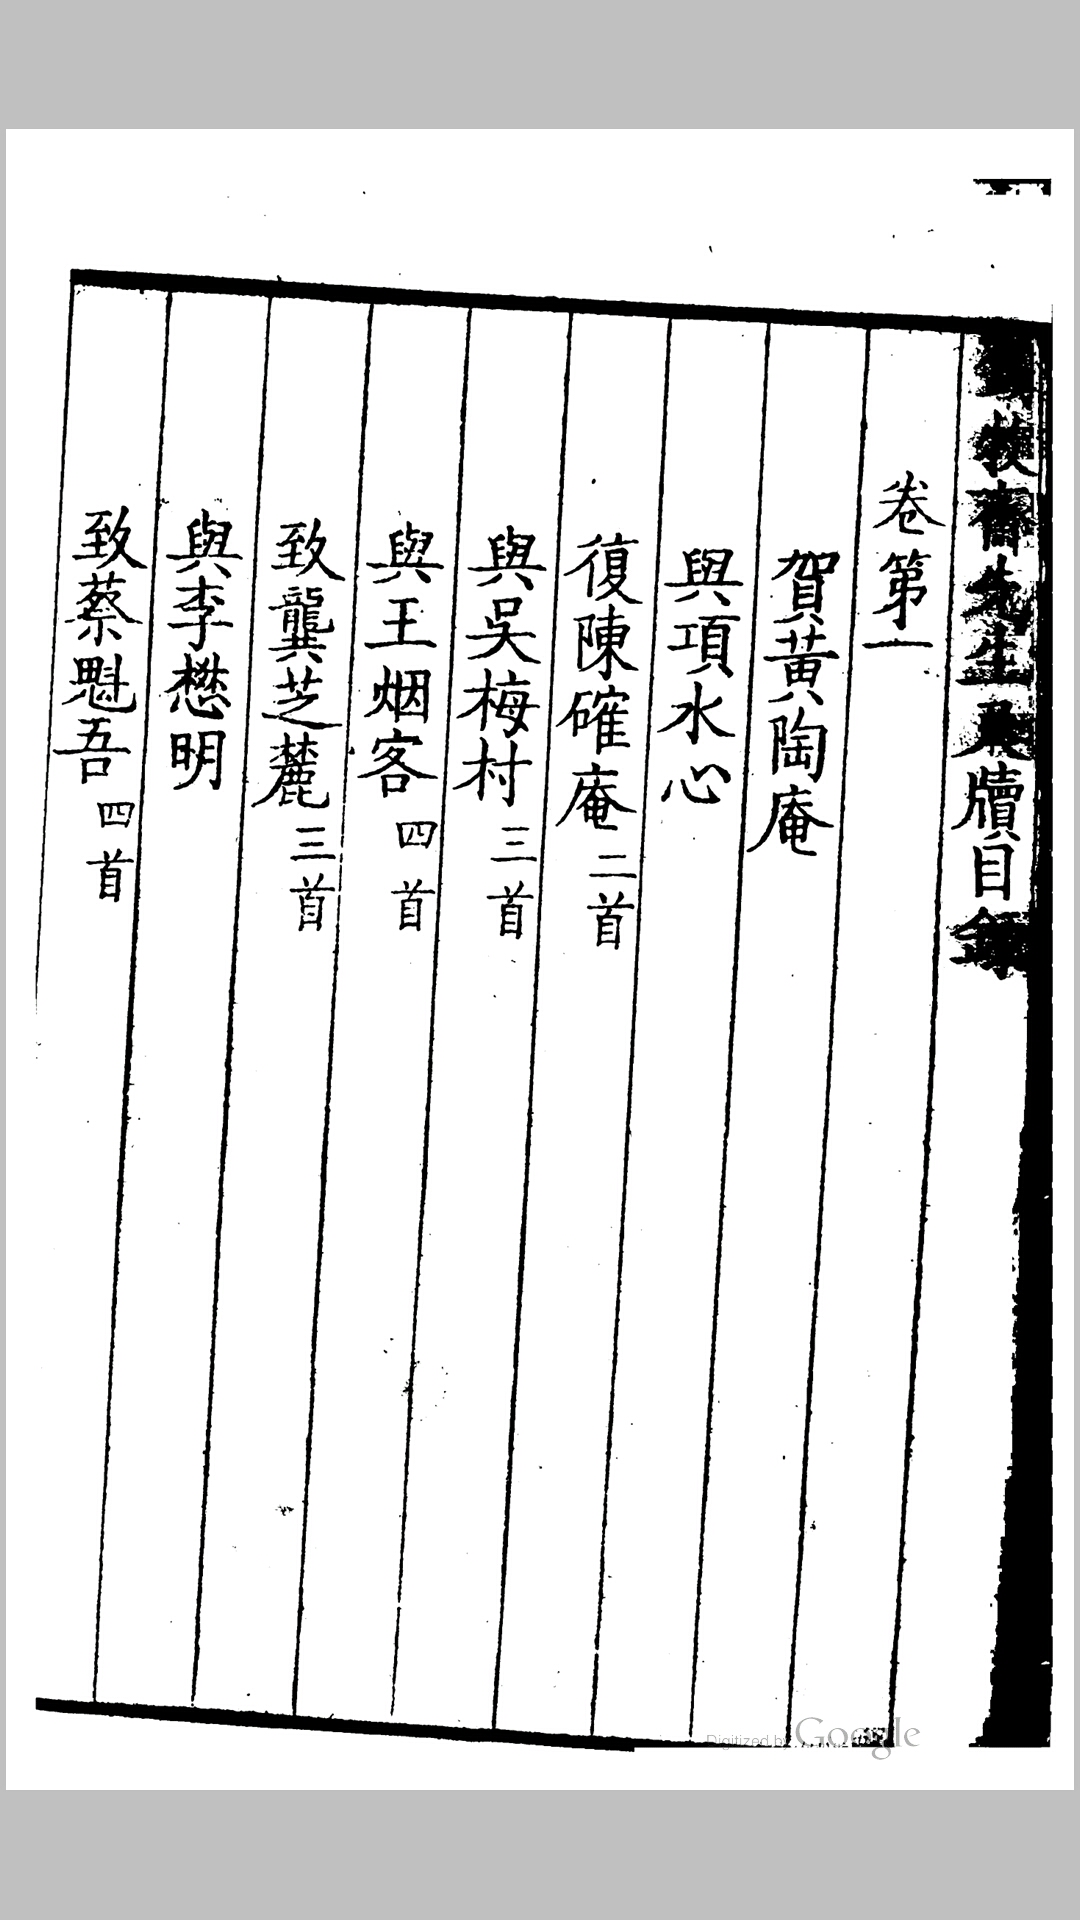 牧齋先生尺牘目錄
卷第一
賀黃陶庵
與項水心
復陳確庵二首
與吳梅村三首
與王烟客四首
致龔芝麓三首
與李懋明
致蔡魁吾四首
Digitized by Google